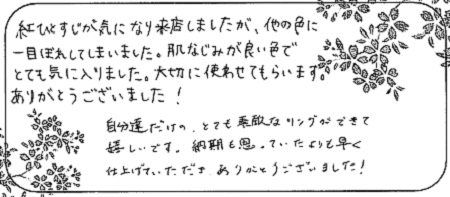 紅ひとすじが気になり来店しましたが、他の色に
一目ぼれしてしまいました。肌なじみが良い色で
とても気に入りました。大切に使わせてもらいます。
ありがとうございました！
自分達だけの、とても素敵なリングができて
嬉しいです。納期も思っていたよりも早く
仕上げていただき ありがとうございました！